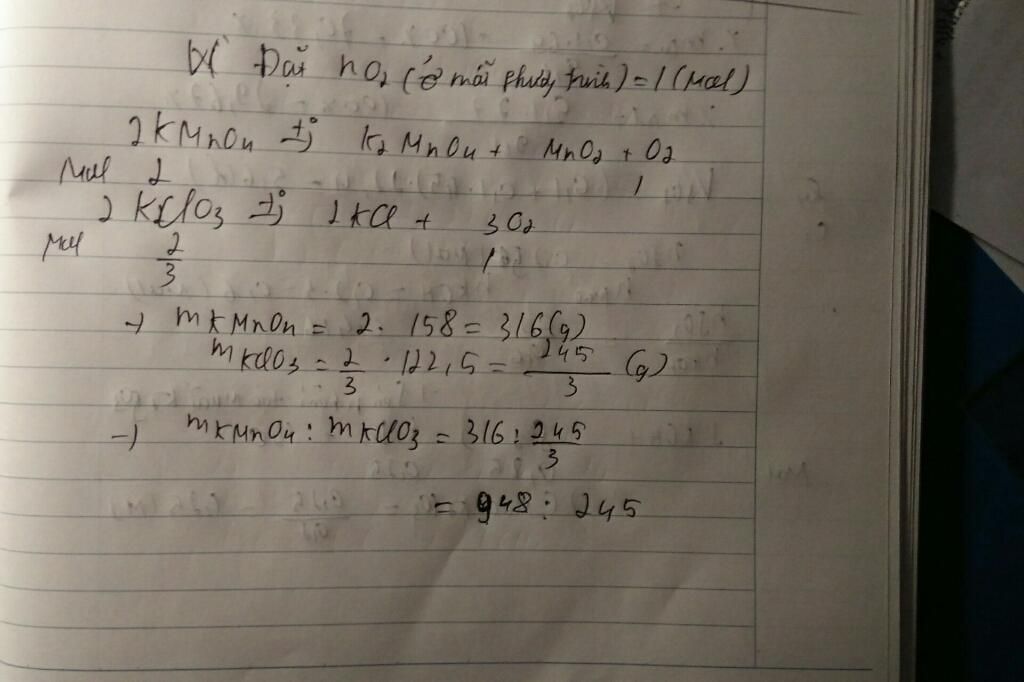 Đặt nO2 (ở mỗi phương trình) = 1 (mol)
2KMnO4 t°→ K2MnO4 + MnO2 + O2
Mol 2 1
2KClO3 t°→ 2KCl + 3O2
Mol 2/3 1
→ mKMnO4 = 2. 158 = 316(g)
mKClO3 = 2/3 . 122,5 = 245/3 (g)
→ mKMnO4 : mKClO3 = 316 : 245/3
= 948 : 245